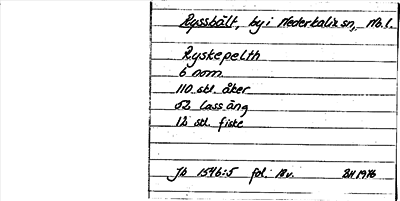 Ryssbält, by i Nederkalix sn, Nb.l.
Ryskepelth
6 nom.
110 stl. åker
52 lass äng
12 stl. fiske
Jb 1546:5 fol. 11 v. BH 1976